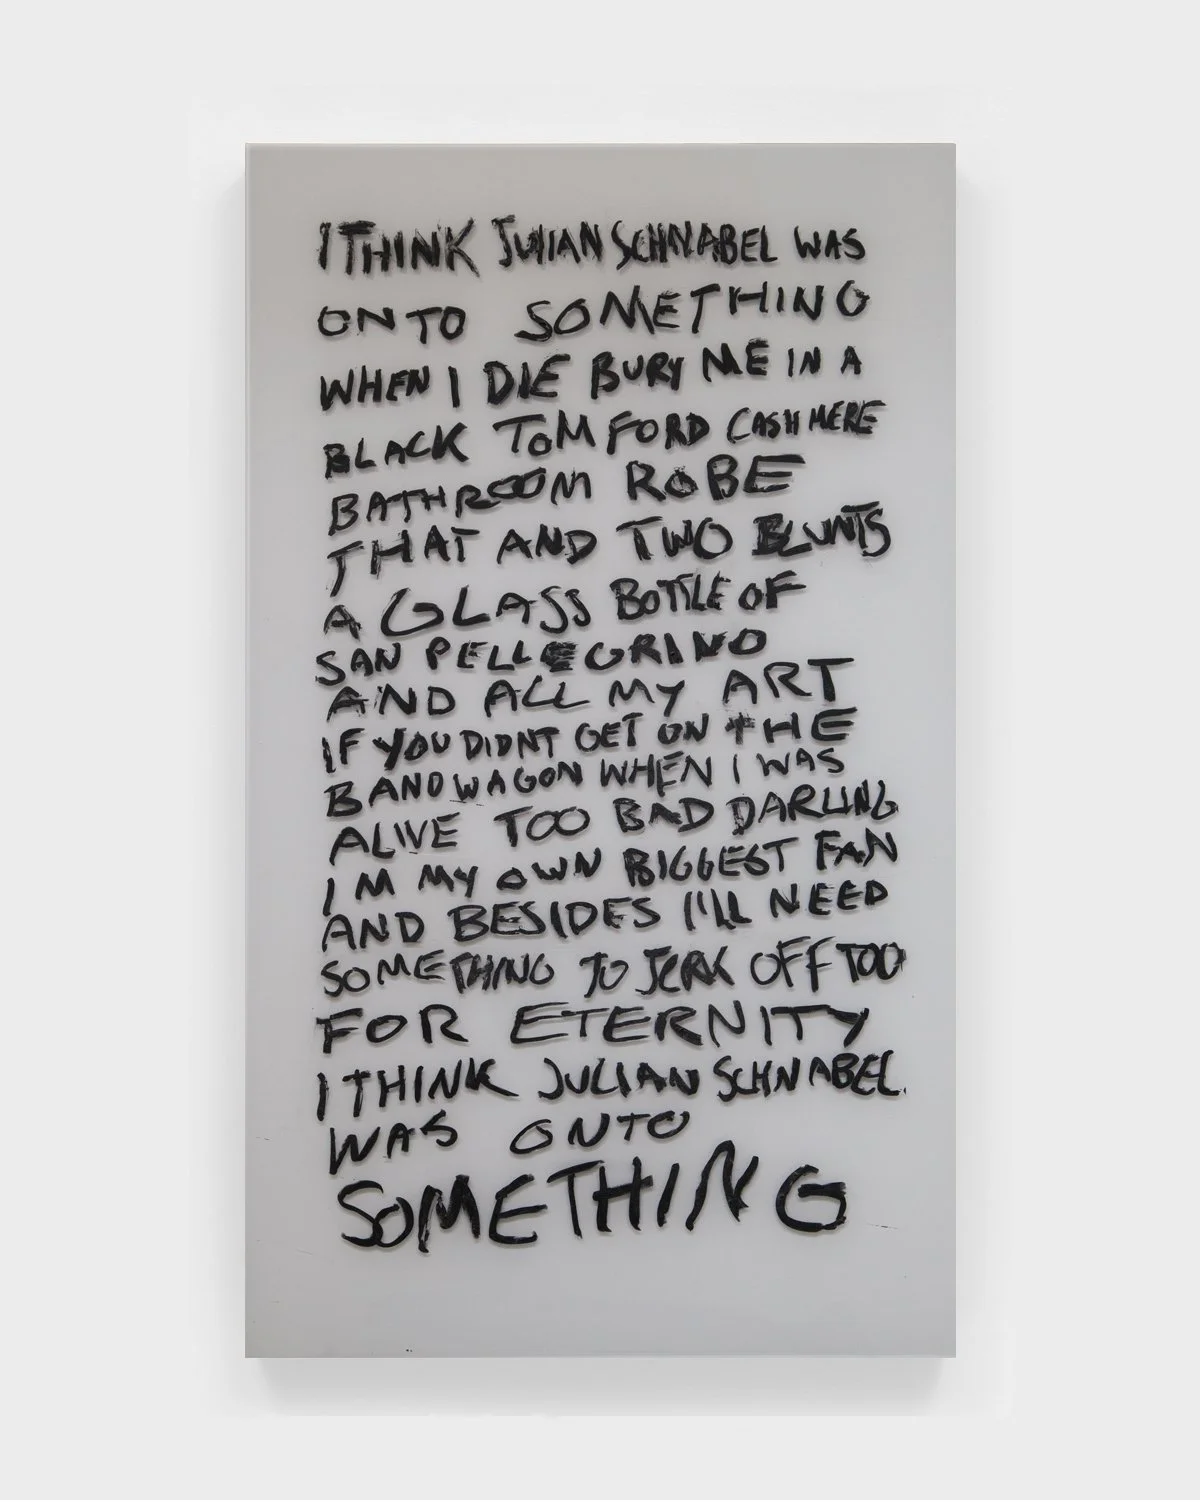 I THINK JULIAN SCHNABEL WAS
ONTO SOMETHING
WHEN I DIE BURY ME IN A
BLACK TOM FORD CASHMERE
BATHROOM ROBE
THAT AND TWO BLUNTS
A GLASS BOTTLE OF
SAN PELLEGRINO
AND ALL MY ART
IF YOU DIDNT GET ON THE
BANDWAGON WHEN I WAS
ALIVE TOO BAD DARLING
IM MY OWN BIGGEST FAN
AND BESIDES I'LL NEED
SOMETHING TO JERK OFF TOO
FOR ETERNITY
I THINK JULIAN SCHNABEL.
WAS ONTO
SOMETHING